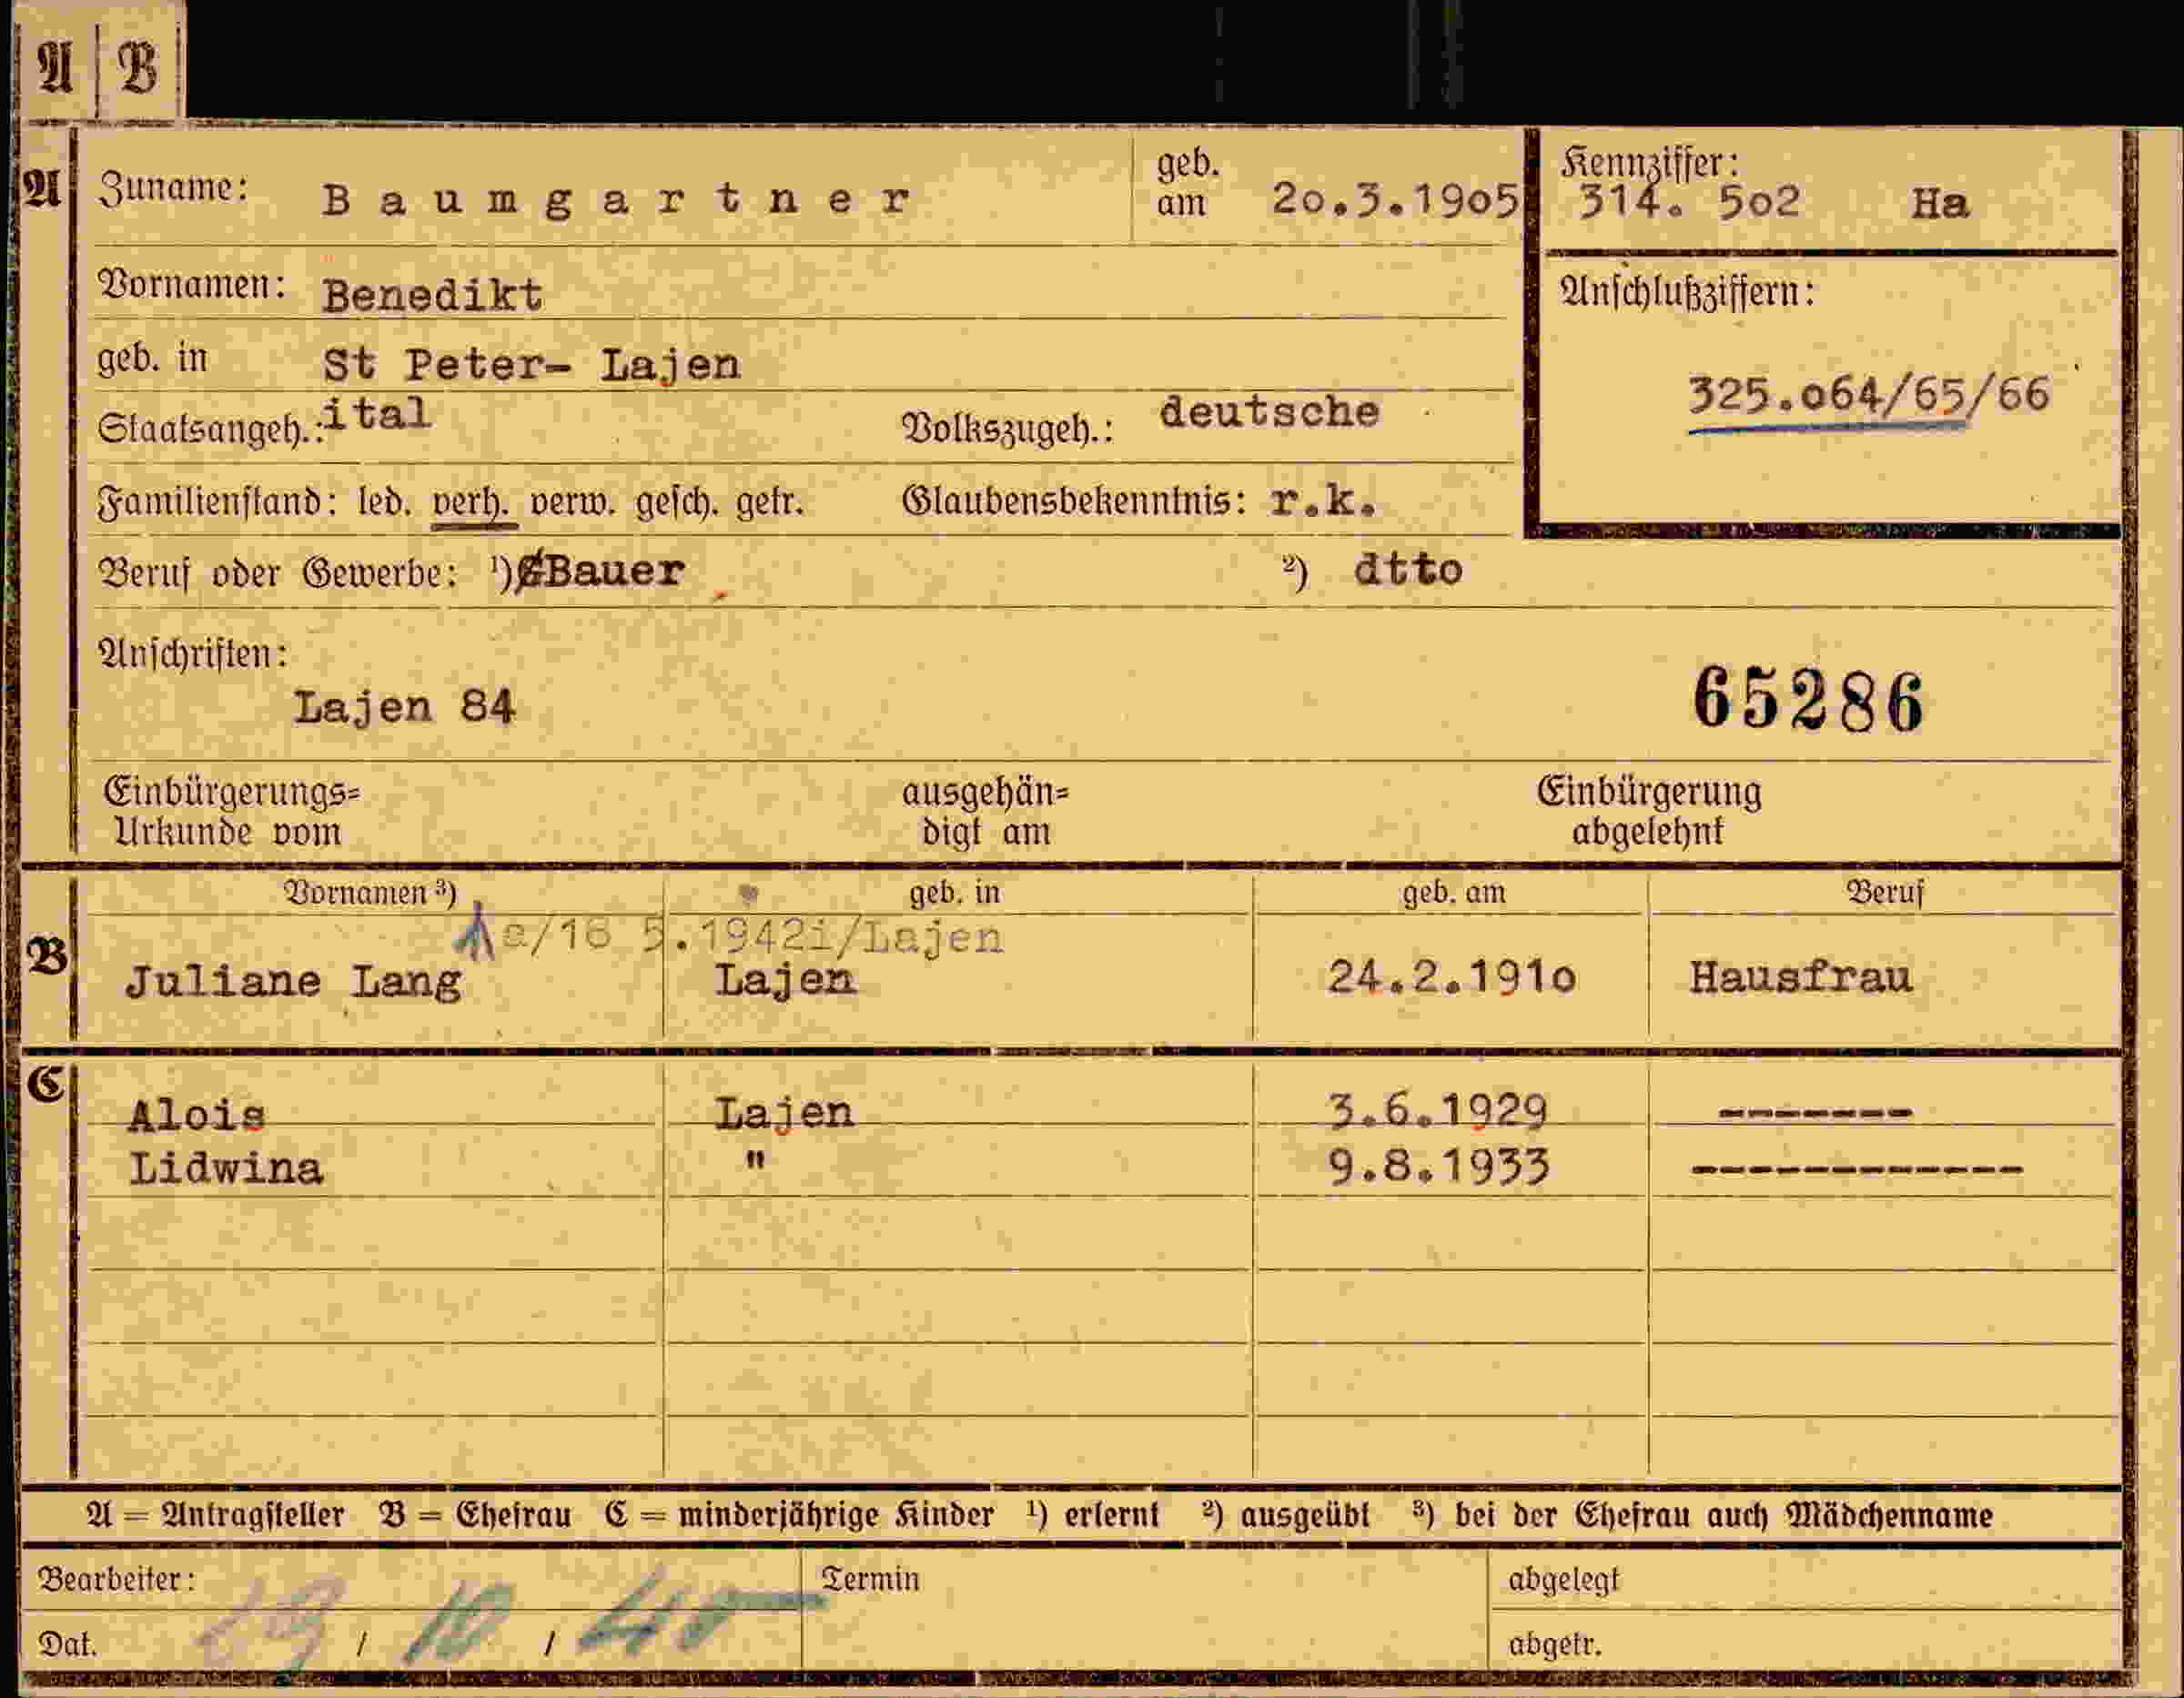 A B
A Zuname: Baumgartner geb. am 20.3.1905 Kennziffer: 314. 502 Ha
Vornamen: Benedikt Anschlußziffern:
geb. in St Peter- Lajen 325.064/65/66
Staatsangeh.: ital Volkszugeh.: deutsche
Familienstand: led. verh. verw. gesch. getr. Glaubensbekenntnis: r.k.
Beruf oder Gewerbe: ¹) Bauer ²) dtto
Anschriften:
Lajen 84 65286
Einbürgerungs= ausgehän= Einbürgerung
Urkunde vom digt am abgelehnt
Vornamen ³) geb. in geb. am Beruf
5.1942i/Lajen
B Juliane Lang Lajen 24.2.1910 Hausfrau
C
Alois Lajen 3.6.1929 -------
Lidwina " 9.8.1933 ------------
A = Antragsteller B = Ehefrau C = minderjährige Kinder ¹) erlernt ²) ausgeübt ³) bei der Ehefrau auch Mädchenname
Bearbeiter: Termin abgelegt
Dat. / 10 / 40 abgetr.